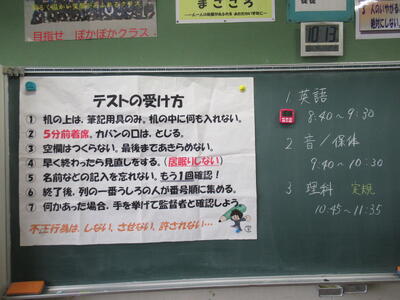 目指せ ぽかぽかクラス
まごころ
10 13
テストの受け方
① 机の上は、筆記用具のみ。机の中に何も入れない。
② 5分前着席。カバンの口は、とじる。
③ 空欄はつくらない。最後まであきらめない。
④ 早く終わったら見直しをする。(居眠りしない)
⑤ 名前などの記入を忘れない。もう1回確認!
⑥ 終了後、列の一番うしろの人が番号順に集める。
⑦ 何かあった場合、手を挙げて監督者と確認しよう。
不正行為は、しない、させない、許されない…
1 英語
8:40〜9:30
2 音/保体
9:40〜10:30
3 理科
10:45〜11:35